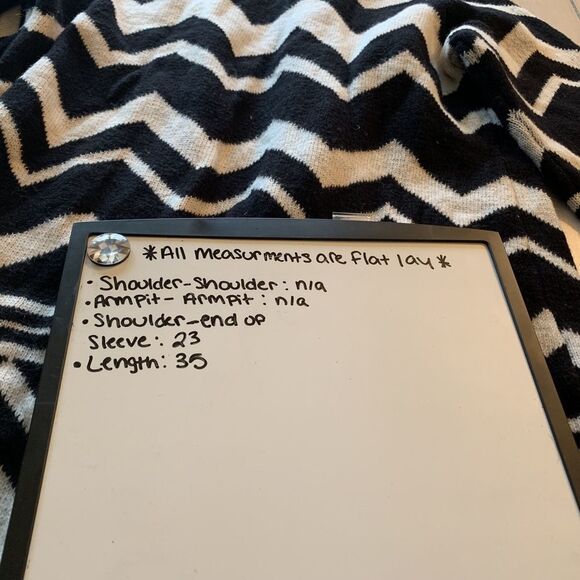 *All measurments are flat lay*
• Shoulder-Shoulder: n/a
• Armpit-Armpit: n/a
• Shoulder-end op
Sleeve: 23
• Length: 35